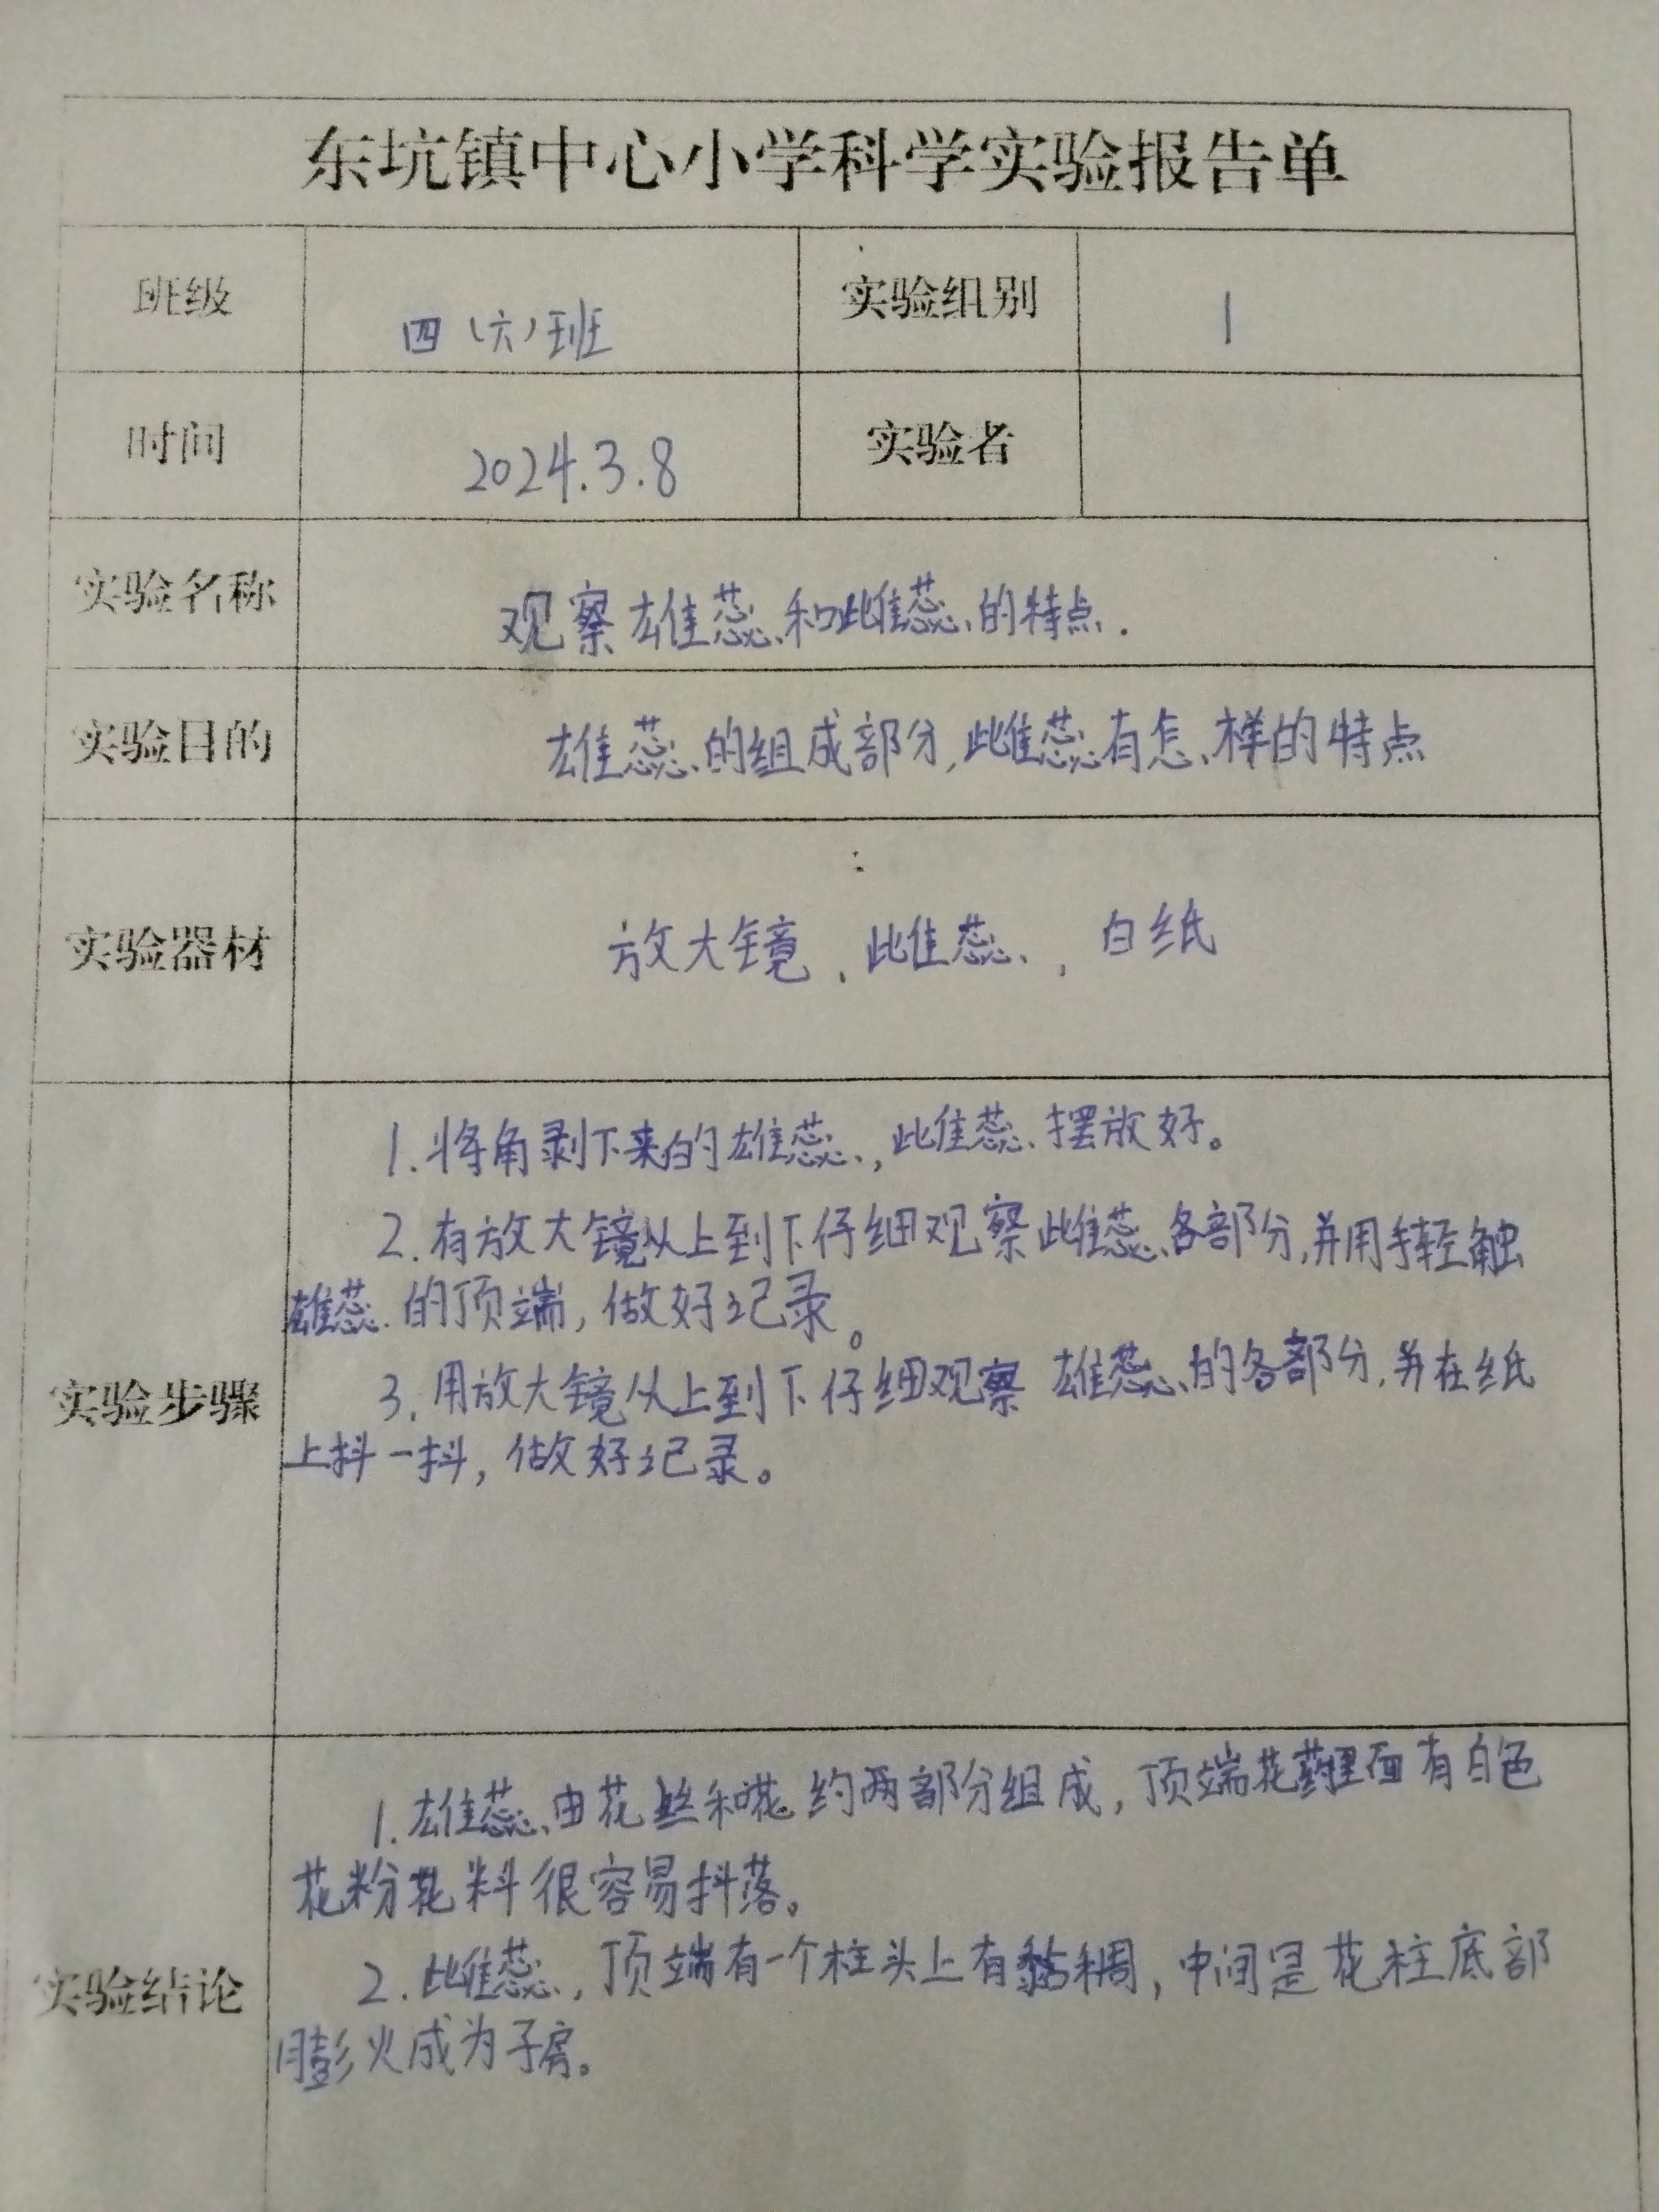 东坑镇中心小学科学实验报告单
班级 四(六)班 实验组别 1
时间 2024.3.8 实验者
实验名称 观察雄蕊和雌蕊的特点.
实验目的 雄蕊的组成部分,雌蕊有怎样的特点
实验器材 放大镜、雌蕊、,白纸
1.将角剥下来的雄蕊,雌蕊摆放好。
2.有放大镜从上到下仔细观察雌蕊各部分,并用手轻触
雄蕊的顶端,做好记录。
实验步骤 3.用放大镜从上到下仔细观察雄蕊的各部分,并在纸
上抖一抖,做好记录。
1.雄蕊由花丝和花约两部分组成,顶端花药里面有白色
花粉花料很容易抖落。
实验结论 2.雌蕊,顶端有一个柱头上有黏稠,中间是花柱底部
膨火成为子房。